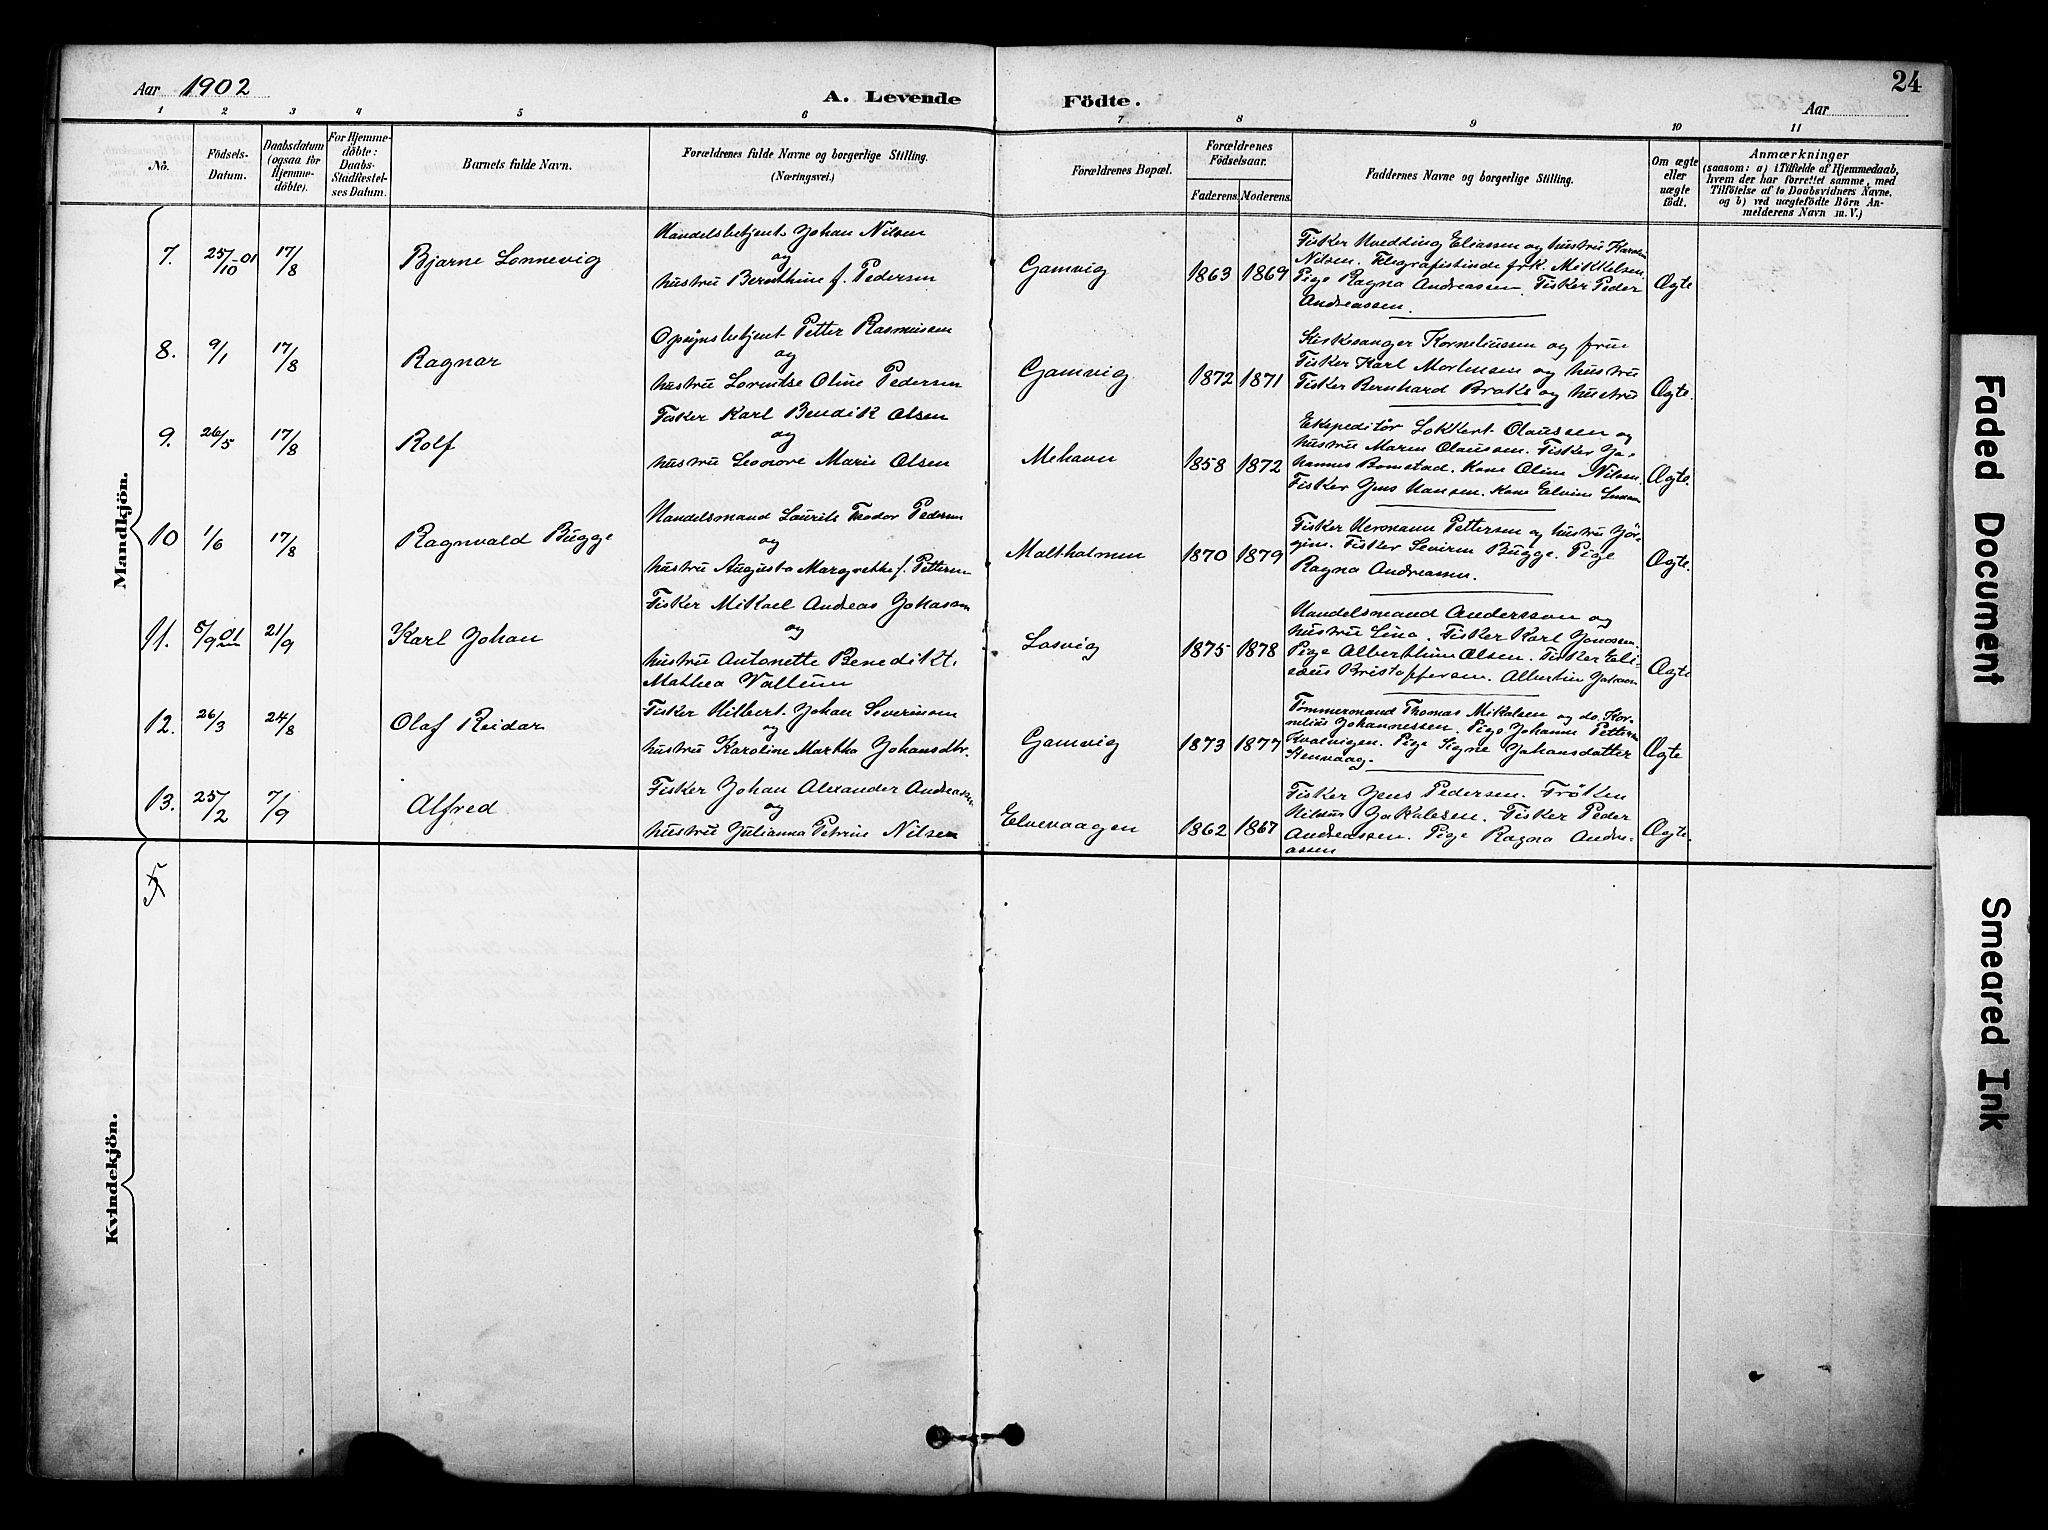 Aar 1902
A. Levende Födte.
Aar
24
1 2 3 4 5 6 7 8 9 10 11
No.
Födsels-
Datum.
Daabsdatum
(ogsaa for
Hjemme-
döbte).
For Hjemme-
döbte:
Daabs-
Stadfæstel-
ses Datum.
Barnets fulde Navn.
Forældrenes fulde Navne og borgerlige Stilling.
(Næringsvei.)
Forældrenes Bopæl.
Forældrenes
Födselsaar.
Faderens. Moderens.
Faddernes Navne og borgerlige Stilling.
Om ægte
eller
uægte
födt.
Anmærkninger
(saasom: a) i Tilfælde af Hjemmedaab,
hvem der har forrettet samme, med
Tilföielse af to Daabsvidners Navne,
og b) ved uægtefödte Börn An-
melderens Navn m. V.)
Mandkjön.
7. 25/10-01 17/8 Bjarne Lonnevig
Handelsbetjent Johan Nilsen
og
hustru Bernthine f. Pedersen
Gamvig 1863 1869
Fisker Hvedding Eliassen og hustru Karoline
Nilsen. Telegrafistinde frk. Mikkelsen.
Pige Ragna Andreassen. Fisker Peder
Andreassen.
Ægte
8. 9/1 17/8 Ragnar
Opsynsbetjent Petter Rasmussen
og
hustru Lorentse Oline Pedersen
Gamvig 1872 1871
Kirkesanger Korneliussen og frue
Fisker Karl Mortensen og hustru
Fisker Bernhard Broks og hustru
Ægte.
9. 26/5 17/8 Rolf
Fisker Karl Bendik Olsen
og
hustru Leonore Marie Olsen
Mehavn 1858 1872
Ekspeditör Lokkert Olaussen og
hustru Maren Olaussen. Fisker Jo-
hannes Bomstad. Kone Oline Nilsen.
Fisker Jens Hansen. Kone Elvine
Ægte.
10 1/6 17/8 Ragnvald Bugge
Handelsmand Laurits Teodor Pedersen
og
hustru Augusta Margrethe f. Pettersen
Maltholmen 1870 1879
Fisker Hermann Pettersen og hustru Jör-
gine. Fisker Severin Bugge. Pige
Ragna Andreassen.
Ægte.
11. 5/9 01 21/9 Karl Johan
Fisker Mikael Andreas Johansen
og
hustru Antonette Benedikte
Mathea Vallum
Losvig 1875 1878
Handelsmand Andersson og
hustru Lina. Fisker Karl Jonassen
Pige Alberthine Olsen. Fisker Eli-
seus Kristoffersen. Albertine Johansen
Ægte
12. 26/3 24/8 Olaf Reidar
Fisker Hilbert Johan Severinsen
og
hustru Karoline Martha Johansdtr.
Gamvig 1873 1877
Tömmermand Thomas Mikalsen og do. Kor-
nelius Johannessen. Pige Johanne Pettersen
Kvalvigen. Pige Signe Johansdatter
Stenvaag.
Ægte
13. 25/2 7/9 Alfred
Fisker Johan Alexander Andreassen
og
hustru Julianna Petrine Nilsen
Elvevaagen 1862 1867
Fisker Jens Pedersen. Fröken
Jakobsen. Fisker Peder
Andreassen. Pige Ragna Andre-
assen
Ægte.
Kvindekjön.
Faded Document
Smeared Ink